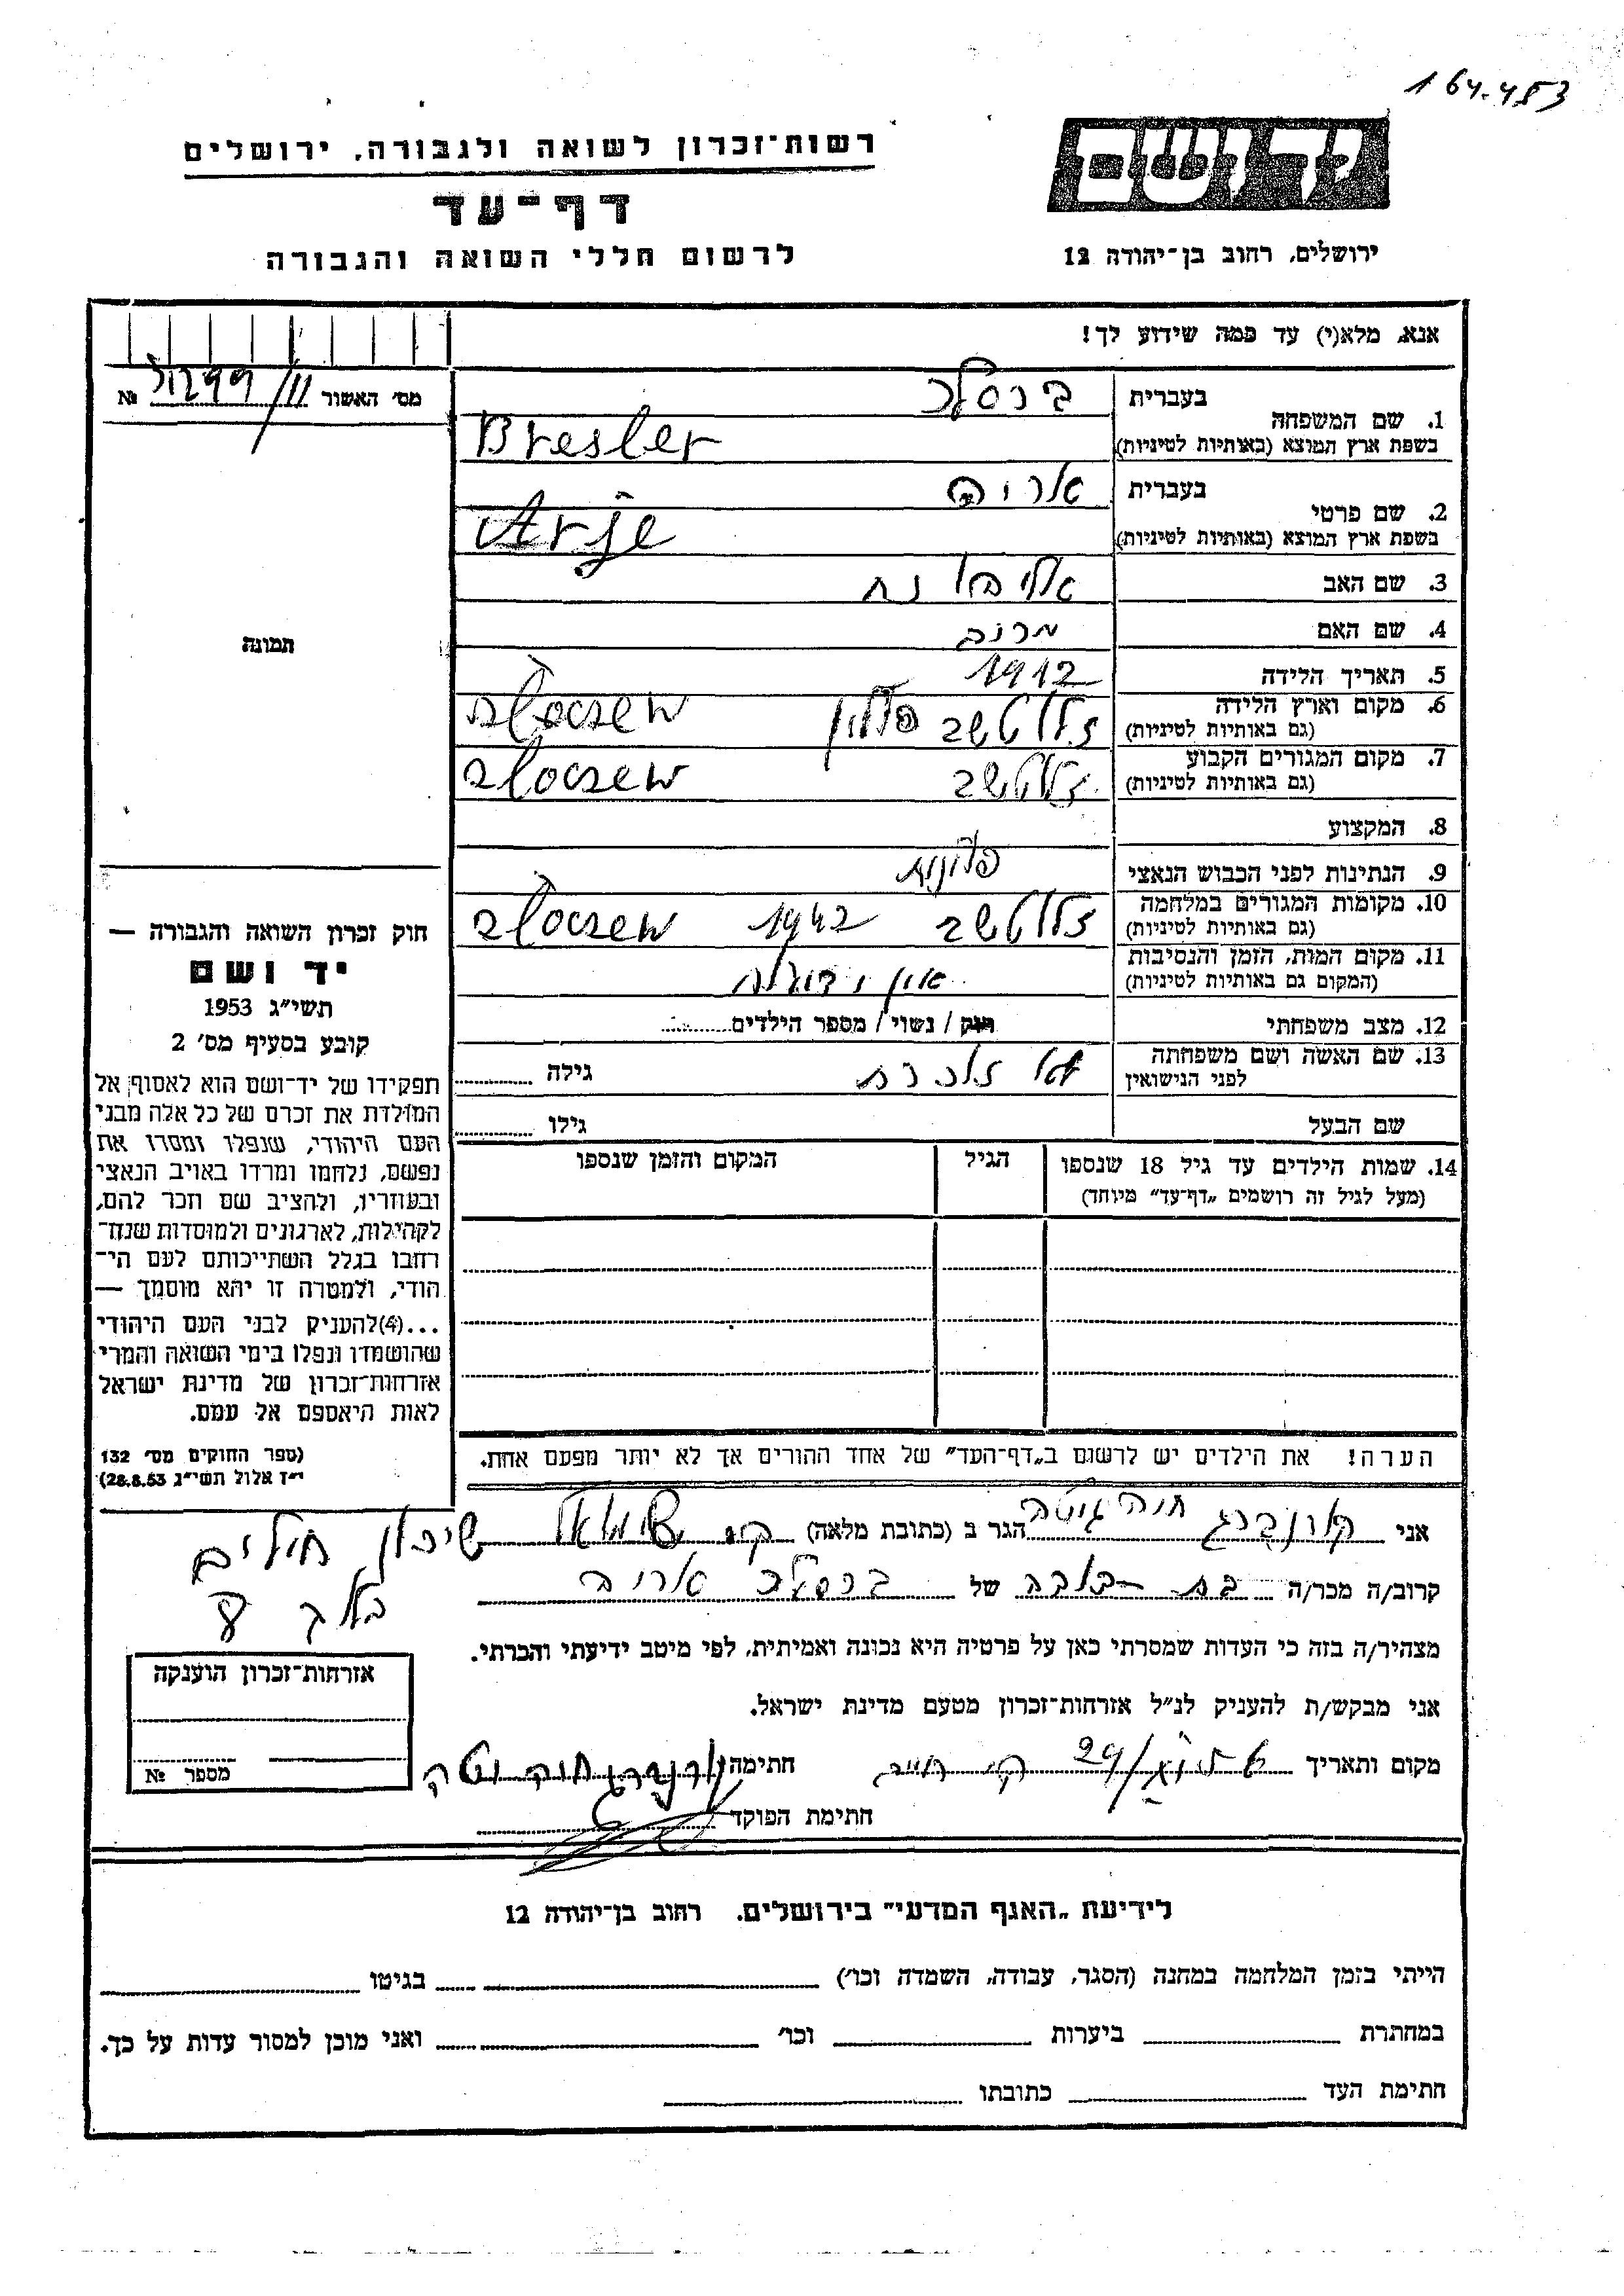 164-453
רשות־זכרון לשואה ולגבורה, ירושלים
דף־עד
לרשום חללי השואה והגבורה
יד ושם
ירושלים, רחוב בן־יהודה 12
אנא, מלא(י) עד כמה שידוע לך!
מס׳ האשור №
1. שם המשפחה
בעברית ברסלר
בשפת ארץ המוצא (באותיות לטיניות) Bresler
2. שם פרטי
בעברית אריה
בשפת ארץ המוצא (באותיות לטיניות) Arje
3. שם האב
4. שם האם מרים
5. תאריך הלידה 1912
6. מקום וארץ הלידה
(גם באותיות לטיניות) זלוטשב פולין złoczew
7. מקום המגורים הקבוע
(גם באותיות לטיניות) זלוטשב złoczew
8. המקצוע
9. הנתינות לפני הכבוש הנאצי פולנית
10. מקומות המגורים במלחמה
(גם באותיות לטיניות) זלוטשב 1942 złoczew
11. מקום המות, הזמן והנסיבות
(המקום גם באותיות לטיניות) אין ידיעה
12. מצב משפחתי רווק / נשוי / מספר הילדים
13. שם האשה ושם משפחתה
לפני הנישואין גילה
שם הבעל גילו
14. שמות הילדים עד גיל 18 שנספו הגיל המקום והזמן שנספו
(מעל לגיל זה רושמים „דף־עד” מיוחד)
הערה! את הילדים יש לרשום ב„דף־העד” של אחד ההורים אך לא יותר מפעם אחת.
תמונה
חוק זכרון השואה והגבורה —
יד ושם
תשי״ג 1953
קובע בסעיף מס׳ 2
תפקידו של יד־ושם הוא לאסוף אל
המולדת את זכרם של כל אלה מבני
העם היהודי, שנפלו ומסרו את
נפשם, נלחמו ומרדו באויב הנאצי
ובעוזריו, ולהציב שם וזכר להם,
לקהילות, לארגונים ולמוסדות שנח־
רבו בגלל השתייכותם לעם הי־
הודי, ולמטרה זו יהא מוסמך —
...(4)להעניק לבני העם היהודי
שהושמדו ונפלו בימי השואה והמרי
אזרחות־זכרון של מדינת ישראל
לאות היאספם אל עמם.
(ספר החוקים מס׳ 132
י״ז אלול תשי״ג 28.8.53)
אני קורנברג חוה גיטה הגר ב (כתובת מלאה) שיכון
קרוב/ה מכר/ה בת של ברסלר אריה
מצהיר/ה בזה כי העדות שמסרתי כאן על פרטיה היא נכונה ואמיתית, לפי מיטב ידיעתי והכרתי.
אני מבקש/ת להעניק לנ״ל אזרחות־זכרון מטעם מדינת ישראל.
מקום ותאריך חתימה
חתימת הפוקד
אזרחות־זכרון הוענקה
מספר №
לידיעת „האגף המדעי” בירושלים. רחוב בן־יהודה 12
הייתי בזמן המלחמה במחנה (הסגר, עבודה, השמדה וכו׳) בגיטו
במחתרת ביערות וכו׳ ואני מוכן למסור עדות על כך.
חתימת העד כתובתו